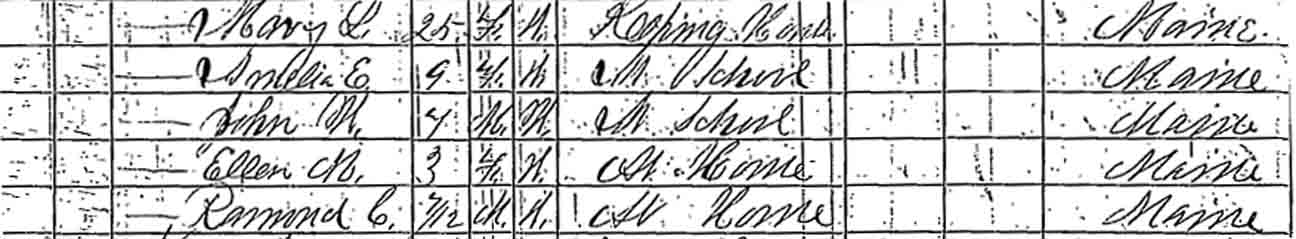 — Mary L. 25 F. W. Keeping House Maine.
— Amelia E. 9 F. W. At School Maine
— John W. 7 M. W. At School Maine
— Ellen M. 3 F. W. At Home Maine
— Ramond C. 7/12 M. W. At Home Maine